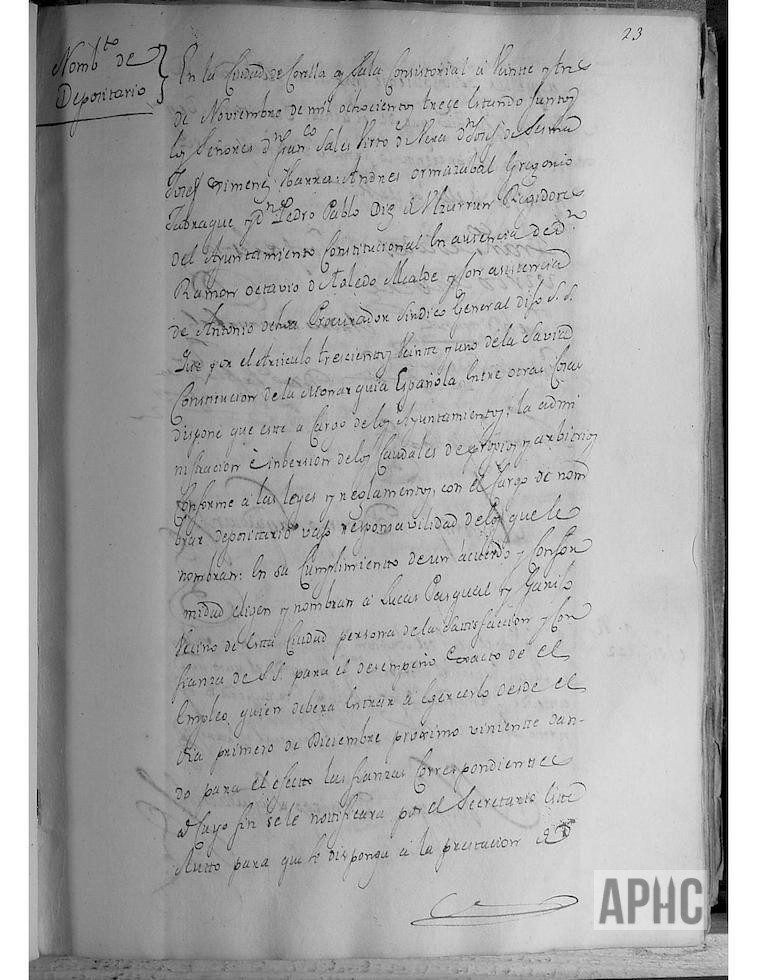 23
Nomb.to de
Depositario
En la Ciudad de Corella y Sala Consistorial a Veinte y tres
de Noviembre de mil ochocientos trece estando Juntos
los Señores d.n Fran.co Sales Virto de Vera d.n Josef de Sesma
Josef Ximenez Ybarra: Andres ormazabal Gregorio
d.n Pedro Pablo Diz Regidores
del Ayuntamiento Constitucional en ausencia de d.n
Ramon octavio de Toledo Alcalde y con asistencia
de Antonio ochoa Procurador Sindico General dijo S. S.
Que por el Articulo trescientos Veinte y uno de la Savia
Constitucion de la Monarquia Española, entre otras Cosas
dispone que este a Cargo de los Ayuntamientos, la admi
nistracion è inbersion de los Caudales de propios y arbitrios
Conforme a las leyes y reglamentos, con el Cargo de nom
brar depositario vajo responsavilidad de los que le
nombran: En su Cumplimiento de un acuerdo y Confor
midad eligen y nombran a Lucas Pasqual y
Vecino de esta Ciudad persona de la satisfaccion y Con
fianza de S.S. para el desempeño exacto de el
Empleo quien debera entrar a egercerlo desde el
dia primero de Diciembre proximo viniente dan-
do para el efecto las fianzas Correspondientes
a Cuyo fin se le notificara por el Secretario este
Auto para que se disponga a la prestacion
APHC